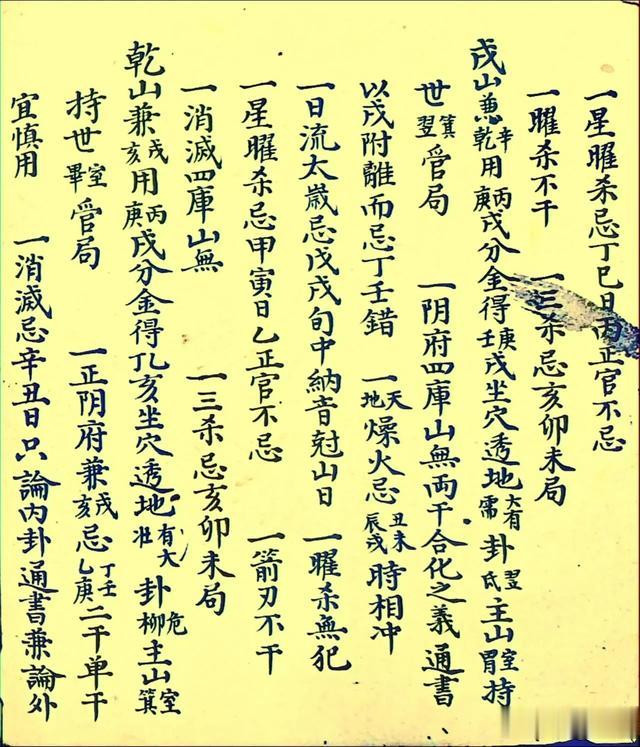 一星曜杀忌丁巳日丙正官不忌
一曜杀不干 一三杀忌亥卯未局
戌山兼辛乾用丙庚戌分金得庚壬戌坐穴透地大有需卦翌氐主山室胃持
世箕翌管局 一阴府四庫山無両干合化之義通書
以戌附離而忌丁壬錯 一天地燥火忌丑未辰戌時相冲
一日流太歲忌戊戌旬中納音尅山日 一曜杀無犯
一星曜杀忌甲寅日乙正官不忌 一箭刃不干
一消滅四庫山無 一三杀忌亥卯未局
乾山兼戌亥用丙庚戌分金得丁亥坐穴透地有大壮卦危柳主山室箕
持世室畢管局 一正阴府兼戌亥忌丁壬乙庚二干单干
宜慎用 一消滅忌辛丑日只論内卦通書兼論外